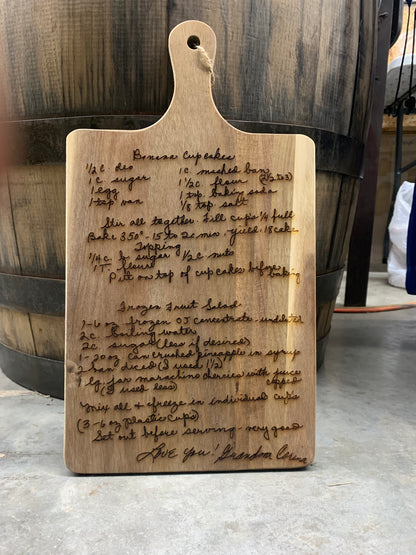 Banana Cupcakes
1/2 c oleo 1 c. mashed ban
1 c sugar 1 1/2 c flour (2 to 3)
1 egg 1 tsp. baking soda
1 tsp van 1/8 tsp salt
Stir all together. Fill cups 3/4 full
Bake 350° - 15 to 20 min. yield: 18 cake
Topping
1/4 c b. sugar 1/2 c nuts
1 T. flour
Put on top of cupcakes before baking
Frozen Fruit Salad
1-6 oz frozen OJ concentrate - undiluted
2 c. boiling water
2 c sugar (less if desired)
1-20 oz can crushed pineapple in syrup
ban diced (I used 1 1/2)
lg. jar maraschino cherries with juice
(I used less) cupped
mix all & freeze in individual cups
(3-6 oz plastic cups)
Set out before serving - very good
Love you! Grandma